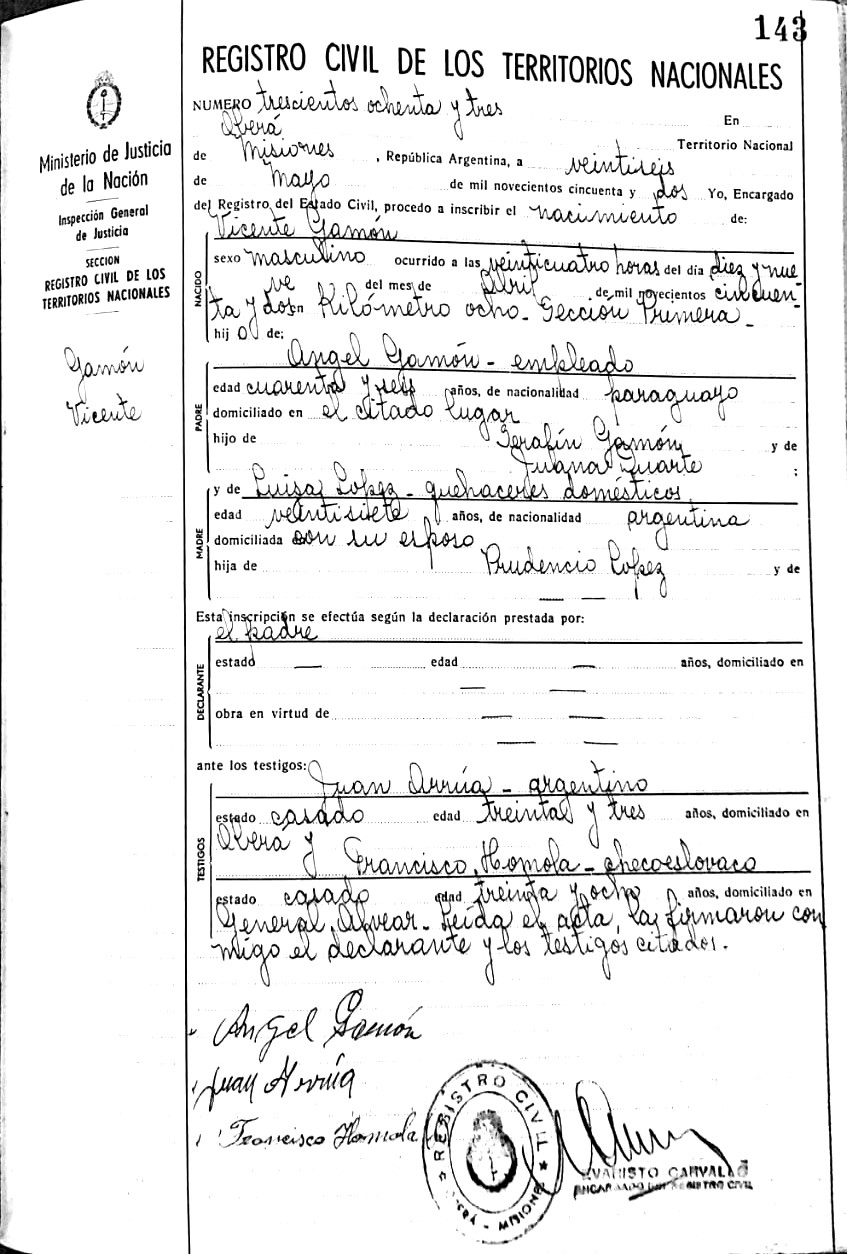 143
REGISTRO CIVIL DE LOS TERRITORIOS NACIONALES
Ministerio de Justicia
de la Nación
Inspección General
de Justicia
SECCION
REGISTRO CIVIL DE LOS
TERRITORIOS NACIONALES
Gamón
Vicente
NUMERO trescientos ochenta y tres En
Oberá Territorio Nacional
de Misiones, República Argentina, a veintiseis
de Mayo de mil novecientos cincuenta y dos Yo, Encargado
del Registro del Estado Civil, procedo a inscribir el nacimiento de:
Vicente Gamón
NACIDO
sexo masculino ocurrido a las veinticuatro horas del día diez y nue
ve del mes de Abril de mil novecientos cincuen-
ta y dos en Kilómetro ocho - Sección Primera -
hijo de:
Angel Gamón - empleado
PADRE
edad cuarenta y seis años, de nacionalidad paraguayo
domiciliado en el citado lugar
hijo de Serafín Gamón y de
Juana Duarte ;
y de Luisa Lopez - quehaceres domésticos
MADRE
edad veintisiete años, de nacionalidad argentina
domiciliada con su esposo
hija de Prudencio Lopez y de
— —
Esta inscripción se efectúa según la declaración prestada por:
el padre
DECLARANTE
estado — edad — años, domiciliado en
— —
obra en virtud de — —
— —
ante los testigos: Juan Arrúa - argentino
TESTIGOS
estado casado edad treinta y tres años, domiciliado en
Oberá y Francisco Homola - checoeslovaco
estado casado edad treinta y ocho años, domiciliado en
General Alvear - Leída el acta, la firmaron con
migo el declarante y los testigos citados.
Angel Gamón
Juan Arrúa
Francisco Homola
REGISTRO CIVIL
OBERÁ - MISIONES
EVARISTO CARVALLO
ENCARGADO DEL REGISTRO CIVIL